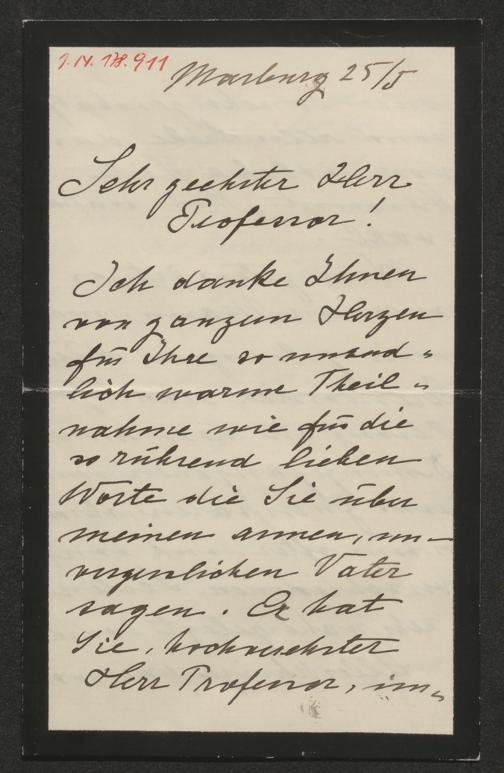 J.N. 178.911
Marburg 25/5
Sehr geehrter Herr
Professor!
Ich danke Ihnen
von ganzem Herzen
für Ihre so unend-
lich warme Theil-
nahme wie für die
so rührend lieben
Worte die Sie über
meinen armen, un-
vergesslichen Vater
sagen. Er hat
Sie, hochverehrter
Herr Professor, im-